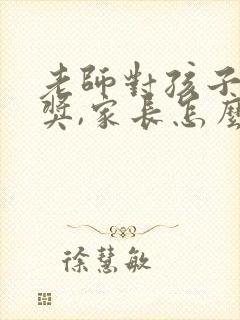 老師對孩子
獎,家長怎麼
徐慧敏